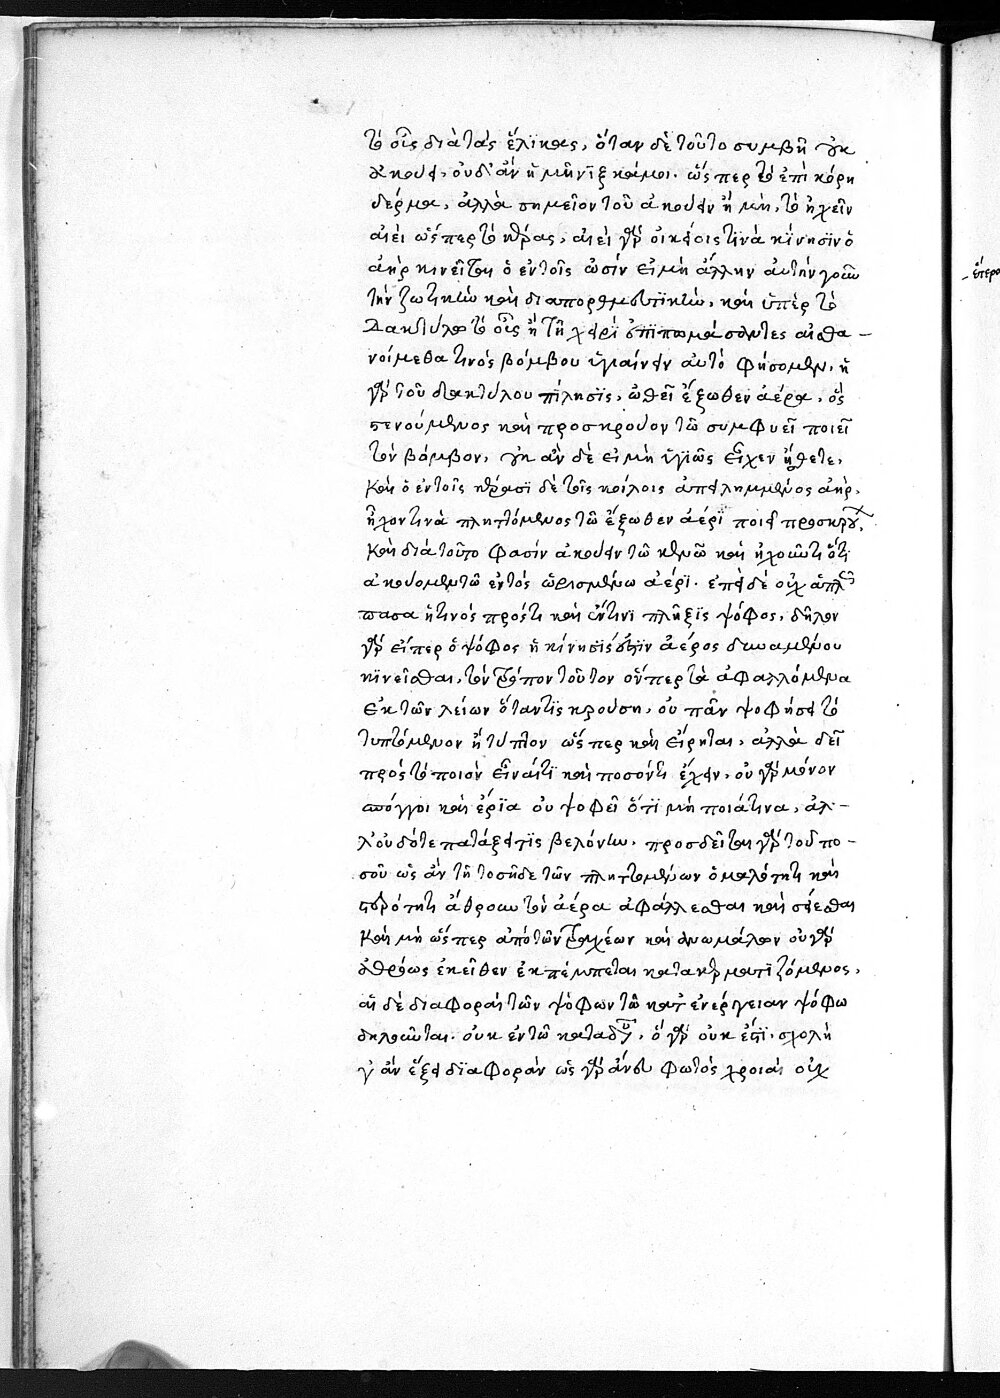 τὸ οὖς διὰ τὰς ἕλικας, ὅταν δὲ τοῦτο συμβῆ οὐκ
ἀκούει, οὐδ' ἂν ἡ μῆνιγξ κάμοι. ὥσπερ τὸ ἐπὶ κόρη
δέρμα, ἀλλὰ σημεῖον τοῦ ἀκούειν ἢ μὴ, τὸ ἠχεῖν
αἰεὶ ὥσπερ τὸ κέρας, αἰεὶ γὰρ οἰκείοις τινὰ κίνησιν ὁ
ἀὴρ κινεῖται ὁ ἐν τοῖς ὠσὶν εἰ μὴ ἄλλην αὐτὴν γοῦν
τὴν ζωτικὴν καὶ διαπορθμευτικὴν, καὶ ὑπὲρ τὸ
δακτύλω τὸ οὖς ἢ τῆ χειρὶ ἐπιπωμάσαντες αἰσθα-
νοίμεθα τινὸς βόμβου ὑγιαίνειν αὐτὸ φήσομεν, ἡ
γὰρ τοῦ δακτύλου πίλησις, ὠθεῖ ἔξωθεν ἀέρα, ὃς
στενούμενος καὶ προσκρούον τῶ συμφυεῖ ποιεῖ
τὸν βόμβον, οὐκ ἂν δὲ εἰ μὴ ὑγιῶς εἶχεν
καὶ ὁ ἐν τοῖς κέρασι δὲ τοῖς κοίλοις ἀπειλημμένος ἀὴρ,
ἦχον τινὰ πληττόμενος τῶ ἔξωθεν ἀέρι ποιεῖ
καὶ διὰ τοῦτο φασὶν ἀκούειν τῶ κενῶ καὶ ἠχοῦντι ὅτι
ἀκούομεν τῶ ἐντὸς ὡρισμένω ἀέρι. ἐπεὶ δὲ οὐχ ἁπλῶς
πασα ἡ τινὸς πρός τι καὶ ἔν τινι πλῆξις ψόφος, δῆλον
γὰρ εἴπερ ὁ ψόφος ἡ κίνησίς ἐστιν ἀέρος δυναμένου
κινεῖσθαι, τὸν τρόπον τοῦτον ὅνπερ τὰ ἀφαλλόμενα
ἐκ τῶν λείων ὅταν τις κρούση, οὐ πᾶν ψοφήσει τὸ
τυπτόμενον ἢ τύπτον ὥσπερ καὶ εἴρηται, ἀλλὰ δεῖ
πρὸς τὸ ποιὸν εἶναί τι καὶ ποσόν τι ἔχειν, οὐ γὰρ μόνον
σπόγγοι καὶ ἔρια οὐ ψοφεῖ ὅτι μὴ ποιάτινα, ἀλ-
λ' οὐδότε πατάξει τις βελόνην. προσδεῖται γὰρ τοῦ πο-
σοῦ ὡς ἂν τῆ τοσῆδε τῶν πληττομένων ὁμαλότητι καὶ
στερότητι ἄθρουν τὸν ἀέρα ἀφάλλεσθαι καὶ σείεσθαι
καὶ μὴ ὥσπερ ἀπὸ τῶν τραχέων καὶ ἀνωμάλων οὐ γὰρ
ἀθρόως ἐκεῖθεν ἐκπέμπεται κατακερματιζόμενος,
αἱ δὲ διαφοραὶ τῶν ψόφων τῶ κατ' ἐνέργειαν ψόφω
δηλοῦνται. οὐκ ἐν τῶ κατὰ δύναμιν, ὃ γὰρ οὐκ ἔστι, σχολῆ
γ' ἂν ἕξει διαφορὰν ὡς γὰρ ἄνευ φωτὸς χροιαὶ οὐχ